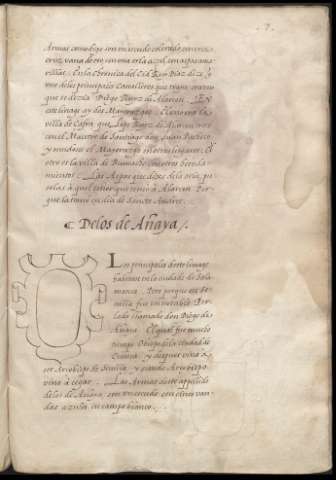 Armas como digo son un escudo colorado con una
cruz vana de oro con una orla azul con aspas ama-
rillas. En la Chronica del Cid Ruy Diaz dize, q̃
uno de los principales Cavalleros que traya era uno
que se dezia Diego Perez de Alarcon. En
este linaje ay dos Mayorazgos
villa de Cafra que Lope Ruyz de Alarcon troco
con el Maestre de Santiago don Juan Pacheco
y mudose el Mayorazgo en otros lugares. El
otro es la villa de Buenache con otros hereda-
mientos. Las Aspas que dizen de la orla, pu-
solas aquel señor que gano a Alarcon Por-
que la tomo en dia de Sancto Andres.
De los de Añaya /.
Los principales deste linage
habitan en la ciudad de Sala-
manca. Pero porque en Se-
villa fue un notable Per-
lado llamado don Diego de
Añaya. El qual fue mucho
tiempo Obispo de la ciudad de
Cuenca, y despues vino a
ser Arçobispo de Sevilla, y siendo Arçobispo
vino a cegar. Las Armas deste appellido
de los de Añaya, son un escudo con cinco van-
das azules en campo blanco.